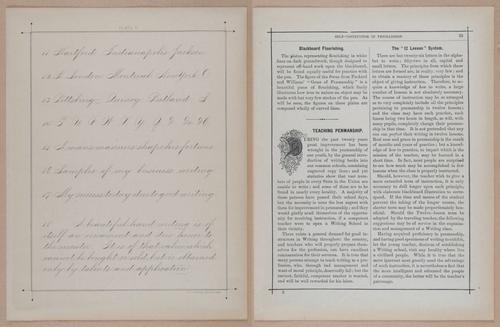 PLATE 9
Hartford Indianapolis Jackson
London Montreal New York
Pittsburg Quincy Portland
Samples of my business writing
A beautiful hand writing is of
itself an ornament and does honor to
the master. It is of that value which
cannot be bought or sold, but is obtained
only by talents and application
SELF-INSTRUCTOR IN PENMANSHIP.
Blackboard Flourishing.
The plates, representing flourishing in white
lines on dark groundwork, though designed to
represent off-hand work upon the blackboard,
will be found equally useful for practice with
the pen. The figure of the Swan from Packard
and Williams' "Gems of Penmanship" is a
beautiful piece of flourishing, which finely
illustrates how true to nature an object may be
made with but very few strokes of the pen. As
will be seen, the figures on these plates are
composed wholly of curved lines.
TEACHING PENMANSHIP.
DURING the past twenty years
great improvement has been
wrought in the penmanship of
our youth, by the general intro-
duction of writing books into
our common schools, containing
engraved copy lines; and yet
statistics show that vast num-
bers of people in every State in the Union are
unable to write; and some of these are to be
found in nearly every locality. A majority of
these persons have passed their school days,
but the necessity is none the less urgent with
them for improvement in penmanship; and they
would gladly avail themselves of the opportu-
nity for receiving instruction, if a competent
teacher were to open a Writing School in
their vicinity.
There exists a general demand for good in-
structors in Writing throughout the country,
and teachers who will properly prepare them-
selves for the profession, can have excellent
remuneration for their services. It is true that
many persons attempt to teach writing as a pro-
fession, who, through bad management and
want of moral principle, deservedly fail; but the
earnest, faithful, competent teacher is wanted,
and will be well rewarded for his labor.
The "12 Lesson" System.
There are but twenty-six letters in the alpha-
bet to write; fifty-two in all, capital and
small letters. The principles from which these
letters are formed are, in reality, very few; and
to obtain a mastery of these principles is the
object of giving instruction. Therefore, to ac-
quire a knowledge of how to write, a large
number of lessons is not absolutely necessary.
The course of instruction may be so arranged
as to very completely include all the principles
relating to penmanship in twelve lessons;
and the class may have such practice, each
lesson being two hours in length, as will, with
many pupils, completely change their penman-
ship in that time. It is not pretended that any
one can perfect their writing in twelve lessons.
Real ease and grace in penmanship is the result
of months and years of practice; but a knowl-
edge of how to practice, to impart which is the
mission of the teacher, may be learned in a
short time. In fact, most people are surprised
to see how much may be accomplished in few
lessons when the class is properly instructed.
Should, however, the teacher wish to give a
more extended term of instruction, it is only
necessary to drill longer upon each principle,
with elaborate blackboard illustration to corre-
spond. If the time and means of the student
prevent the taking of the longer course, the
shorter term may be made proportionately ben-
eficial. Should the Twelve-lesson term be
adopted by the traveling teacher, the following
suggestions may be of service in the organiza-
tion and management of a Writing class.
Having acquired proficiency in penmanship,
and having good specimens of writing to exhibit,
let the young teacher, desirous of establishing
a Writing school, visit any locality where live
a civilized people. While it is true that the
more ignorant most greatly need the advantage
of such instruction, it is nevertheless a fact that
the more intelligent and educated the people
of a community, the better will be the teacher's
patronage.